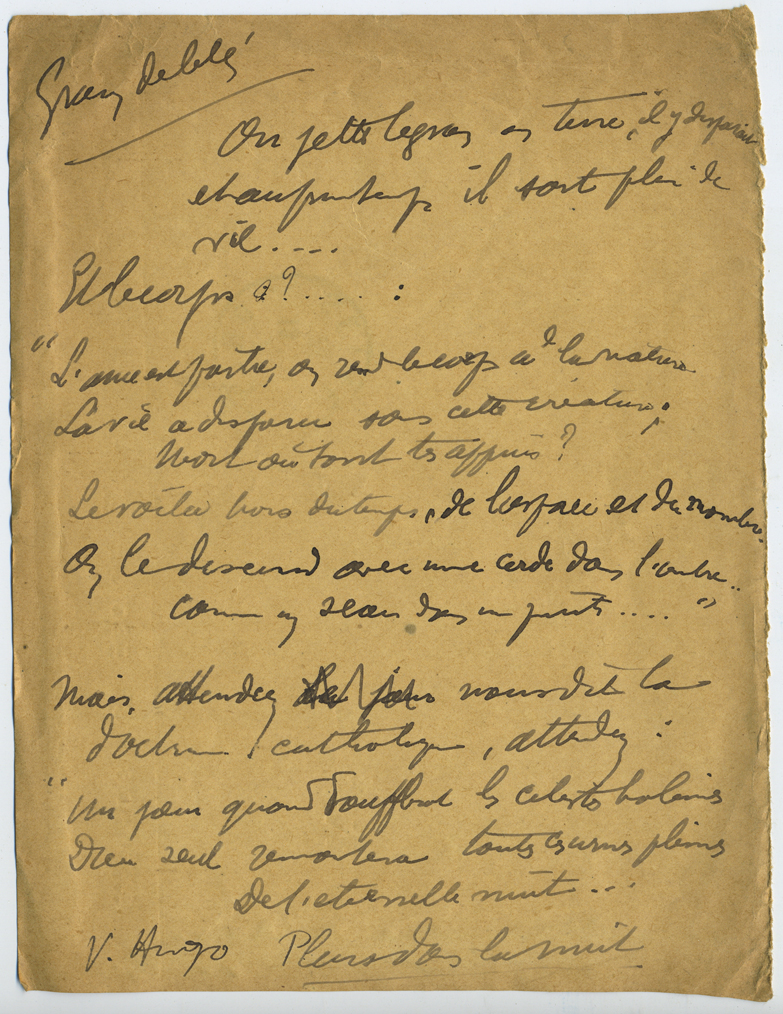 Grain de blé
On jette le grain en terre, il y disparait
et au printemps il sort plein de
vie....
Et le corps ?..... :
"L'ame est partie, on rend le corps à la nature
La vie a disparu sous cette créature;
Mort où sont tes appuis?
Le voilà hors du temps, de l'espace et du nombre.
On le descend avec une corde dans l'ombre..
comme un seau dans un puits...."
Mais, attendez nous dit la
doctrine catholique, attendez:
"Un jour quand souffleront les célestes haleines
Dieu seul remontera toutes ces urnes pleines
De l'eternelle nuit...
V. Hugo Pleurs dans la nuit